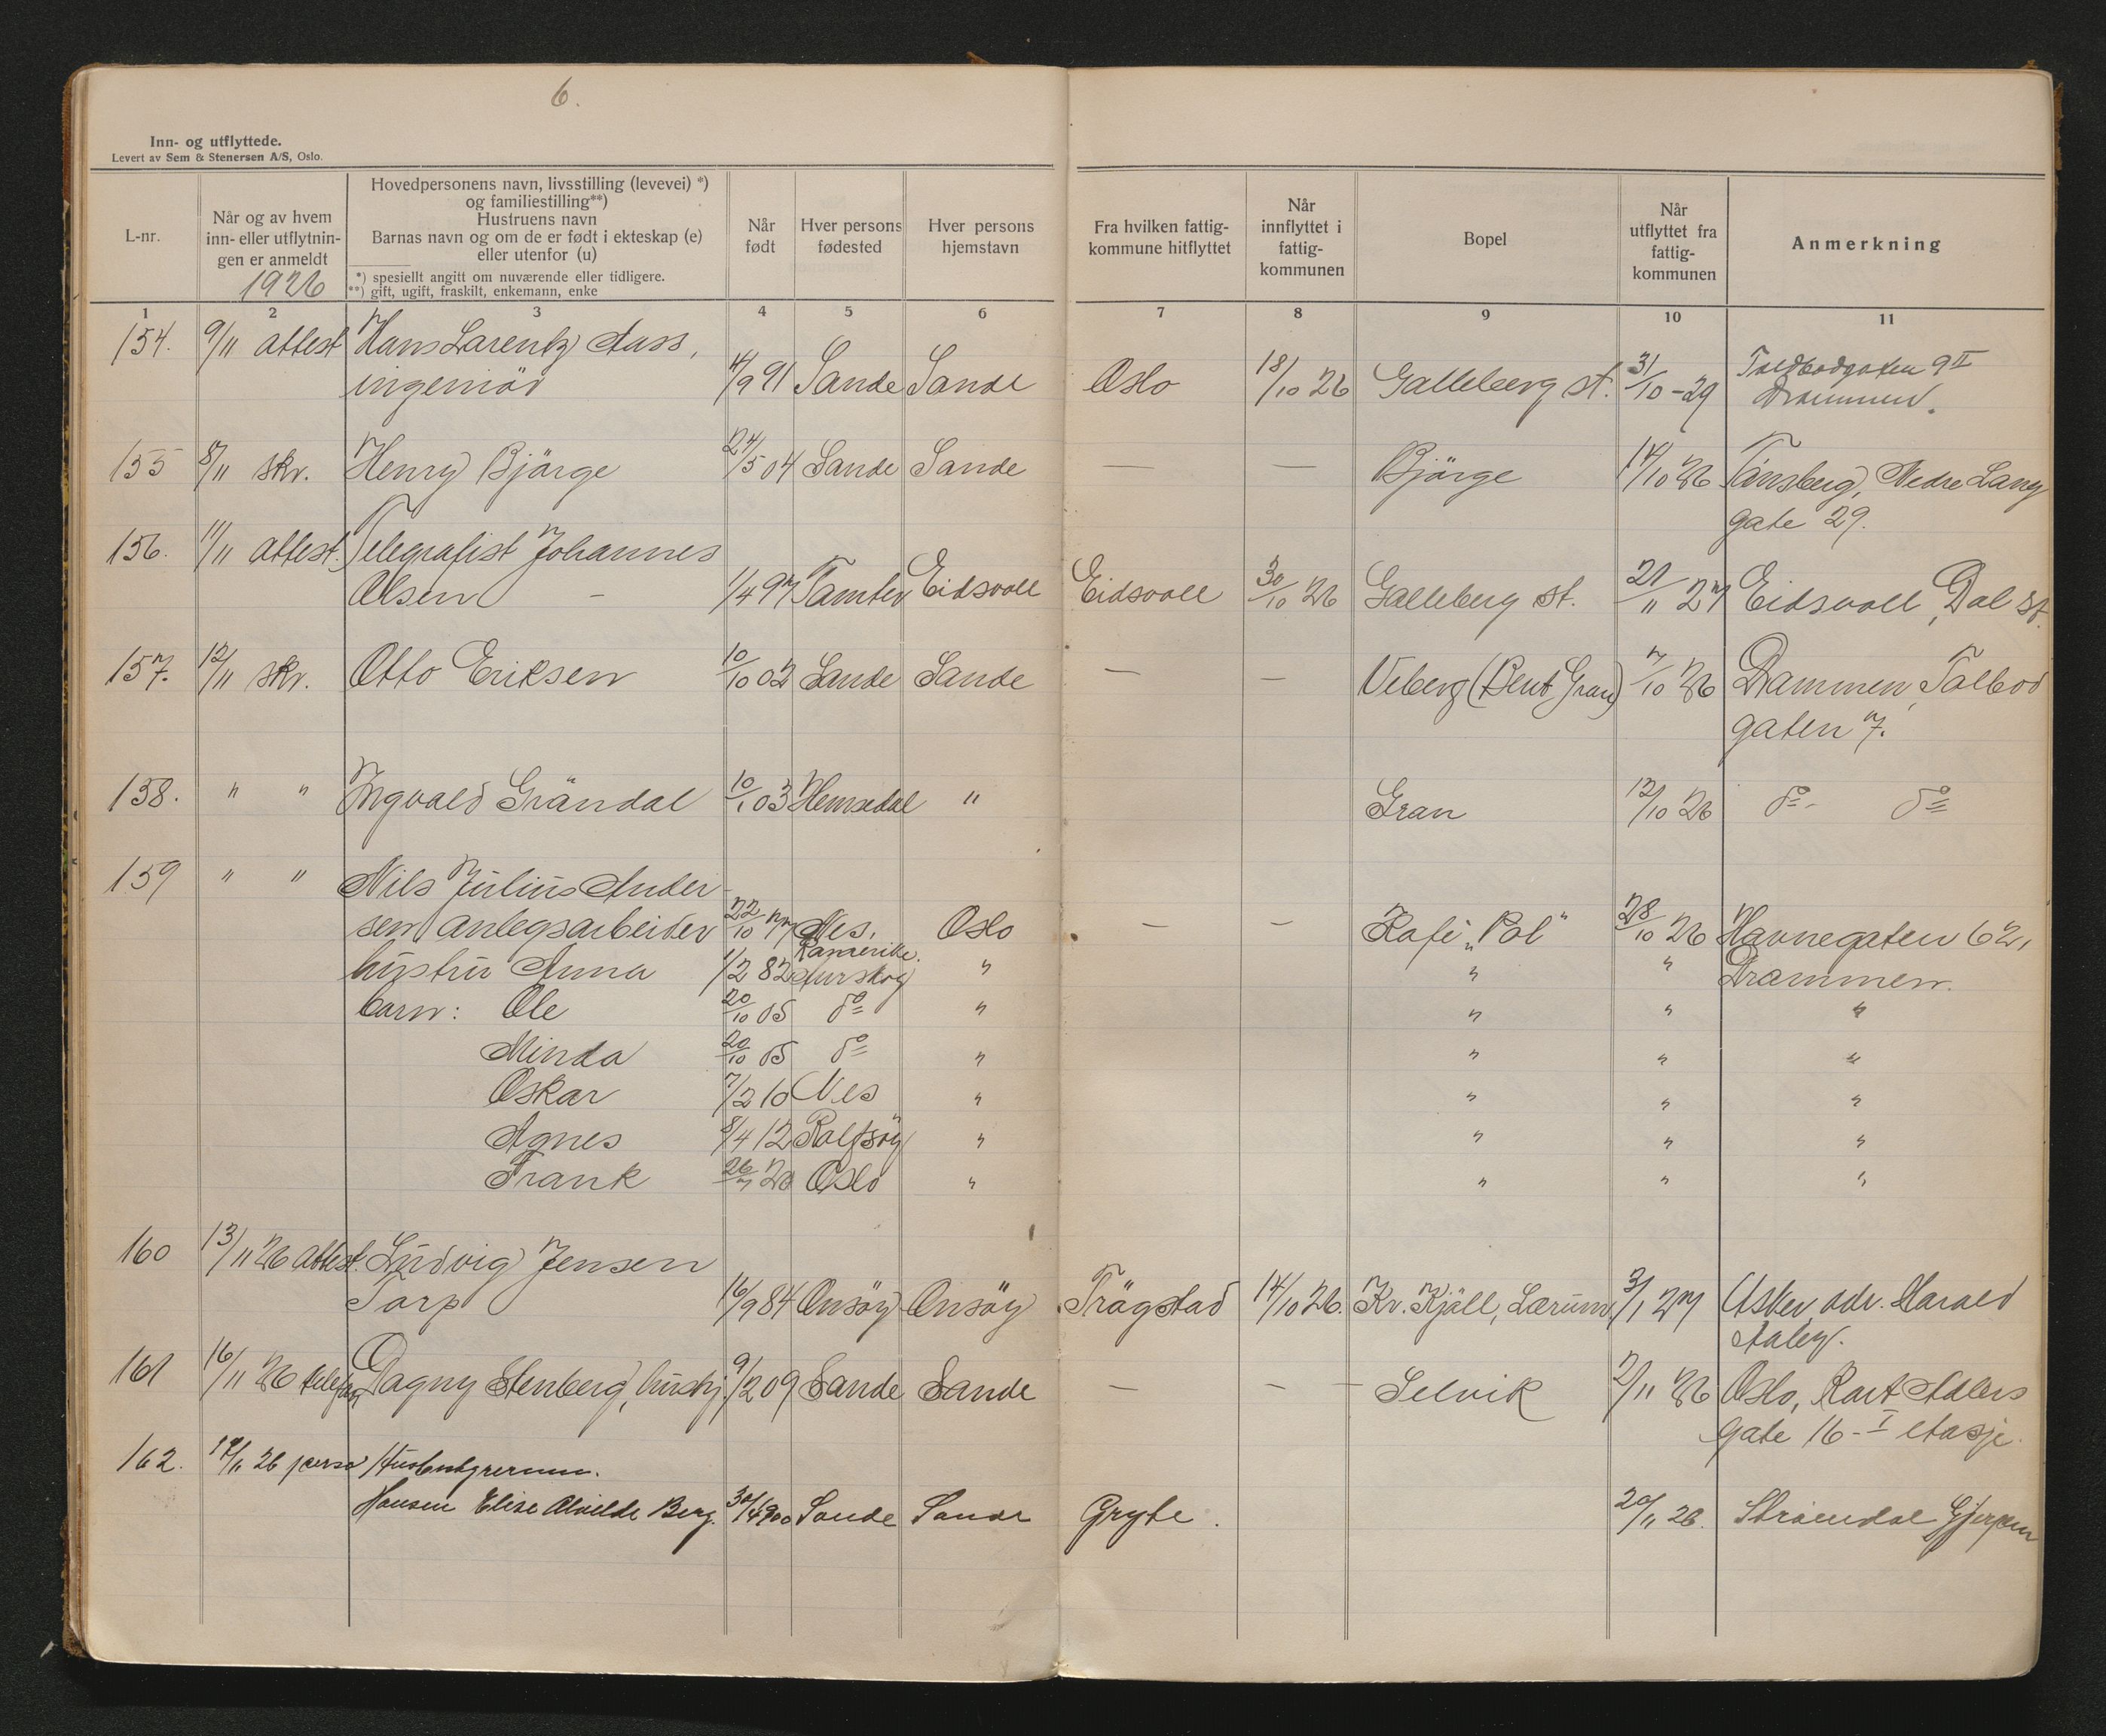 6.
Inn- og utflyttede.
Levert av Sem & Stenersen A/S, Oslo.
L-nr.
Når og av hvem
inn- eller utflytnin-
gen er anmeldt
1926
Hovedpersonens navn, livsstilling (levevei) *)
og familiestilling**)
Hustruens navn
Barnas navn og om de er født i ekteskap (e)
eller utenfor (u)
*) spesiellt angitt om nuværende eller tidligere.
**) gift, ugift, fraskilt, enkemann, enke
Når
født
Hver persons
fødested
Hver persons
hjemstavn
Fra hvilken fattig-
kommune hitflyttet
Når
innflyttet i
fattig-
kommunen
Bopel
Når
utflyttet fra
fattig-
kommunen
Anmerkning
1 2 3 4 5 6 7 8 9 10 11
154. 9/11 attest Hans Larentz Aass, Toldbodgaten 9 II
ingeniör 4/9 91 Sande Sande Oslo 18/10 26 Galleberg st. 31/10-29 Drammen.
155 8/11 skr. Henry Björge 24/5 04 Sande Sande — — Björge 14/10 26 Tönsberg, Nedre Lang
gate 29.
156. 11/11 attest. Telegrafist Johannes
Olsen - 1/4 97 Eidsvoll Eidsvoll 30/10 26 Galleberg st. 21/11 27 Eidsvoll, Dal st.
157. 12/11 skr. Otto Eriksen 10/10 02 Sande Sande — — Veberg (Bent Gran) 7/10 26 Drammen, Tolbod
gaten 7.
158. " " Ingvald Gröndal 10/1 03 Hemsedal " Gran 12/10 26 do - do
159 " " Nils Julius Ander
sen anlegsarbeider 22/10 77 Nes, Oslo — — Kafe „Pol" 28/10 26 Havnegaten 62,
Romerike.
hustru Anna 1/2 82 Aurskog " " " Drammen.
barn: Ole 20/10 05 do " " " "
Minda 20/10 05 do " " " "
Oskar 7/2 10 Nes " " " "
Agnes 8/4 12 Rolfsöy " " " "
Frank 26/7 20 Oslo " " " "
160 13/11 26 attest. Ludvig Jensen
Torp 16/9 84 Onsöy Onsöy Trögstad 14/10 26. Kr. Kjäll, Lærum. 3/1 27 Asker, adr. Harald
161 16/11 26 Dagny Stenberg, hushj. 9/2 09 Sande Sande — — — Selvik 2/11 26 Oslo, Kort Adlers
gate 16 - I etasje.
162. 19/11 26
Hansen Elise Alvilde Berg. 30/4 900 Sande Sande Gryte. 20/11 26. Gjerpen